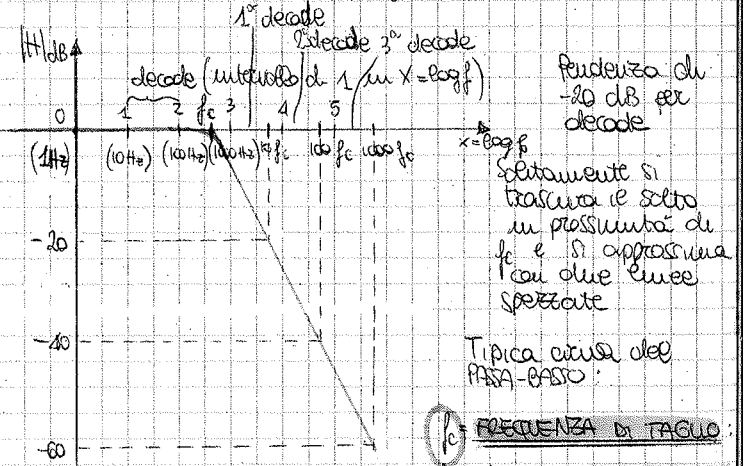 1ª decade
|H|dB
2ª decade 3ª decade
decade (intervallo di 1 in x=logf)
0 1 2 fc 3 4 5
(1Hz) (10Hz) (100Hz) (1000Hz) 10fc 100fc 1000fc
x=logf
-20
-40
-60
Pendenza di
-20 dB per
decade
Solitamente si
trascura il salto
in prossimità di
fc e si approssima
con due linee
spezzate
Tipica curva del
PASSA-BASSO:
fc = FREQUENZA DI TAGLIO: